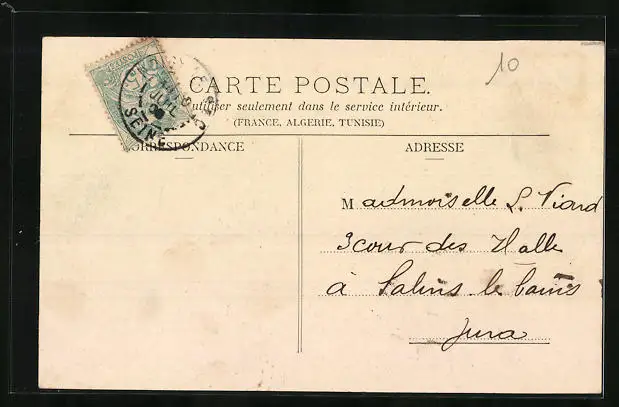 10
CARTE POSTALE.
utiliser seulement dans le service intérieur.
(FRANCE, ALGERIE, TUNISIE)
CORRESPONDANCE
ADRESSE
SEINE
Madmoiselle L. Viard
3 cour des Halle
à Salins le bains
Jura